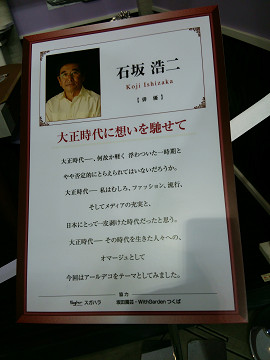 石坂 浩二
Koji Ishizaka
【俳 優】
大正時代に想いを馳せて
大正時代―、何故か軽く 浮わついた一時期と
やや否定的にとらえられてはいないだろうか。
大正時代― 私はむしろ、ファッション、流行、
そしてメディアの充実と、
日本にとって一皮剥けた時代だったと思う。
大正時代― その時代を生きた人々への、
オマージュとして
今回はアールデコをテーマとしてみました。
協力
スガハラ
・WithGarden つくば